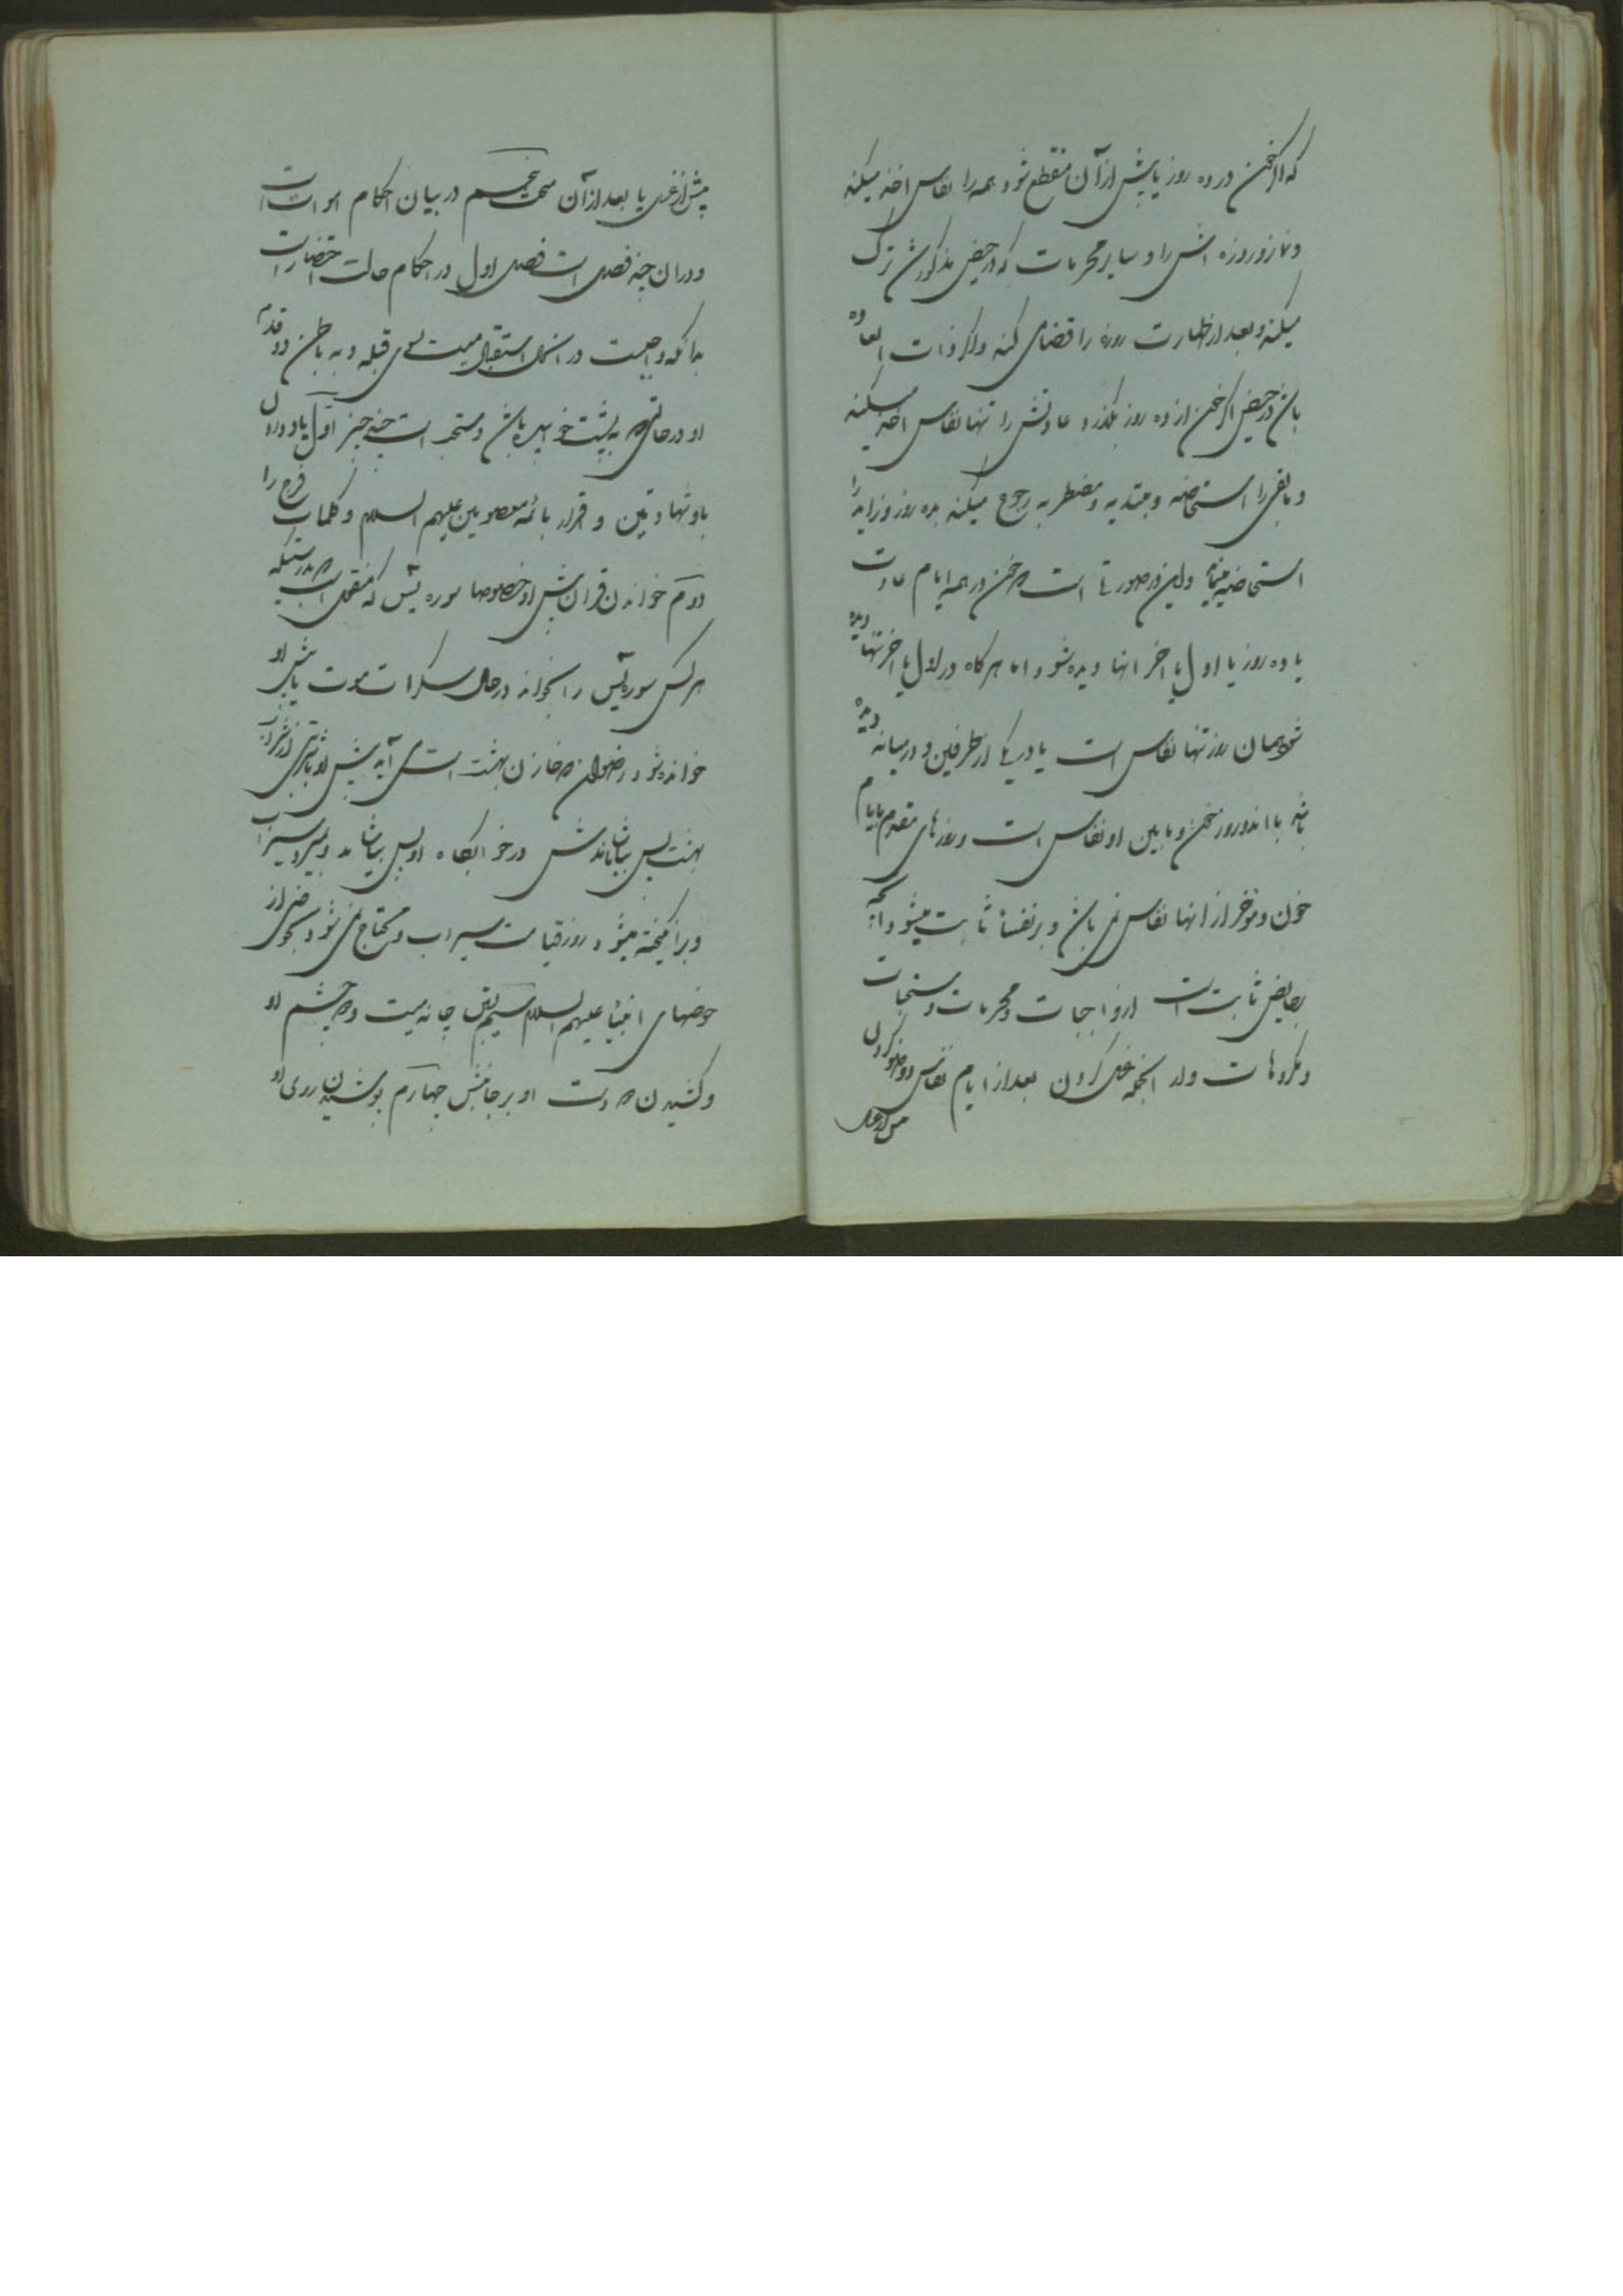 که اگر خون در ده روز یا پیش از آن منقطع شود همه را نفاس اخذ میکند
و نماز و روزه اش را و سایر محرمات که در حیض مذکور شد ترک
میکند و بعد از طهارت روزه را قضا می کند و اگر ذات العاده
باشد در حیض اگر خون از ده روز بگذرد عادتش را تنها نفاس اخذ میکند
و باقی را استحاضه و مبتدیه و مضطربه رجوع میکنند بده روز و زاید را
استحاضه مینماید و این در صورتی است که خون در همه ایام عادت
یا ده روز یا اول یا اخر انها دیده شود اما هر کاه در اول یا اخر تنها دیده
شود همان روز تنها نفاس است یا در یکی از طرفین و در میانه دیده
باشد با اندو روز خون و مابین او نفاس است و روزهای مقدم بایام
خون و موخر از انها نفاس نمی باشد و بر نفسا ثابت میشود انچه
بحایض ثابت است از واجبات و محرمات و مستحبات
و مکروهات و از انجمله غسل کردن بعد از ایام نفاس و وضو کردن
پیش از غسل
پیش از غسل یا بعد از آن مبحث پنجم در بیان احکام اموات است
و در ان چند فصل است فصل اول در احکام حالت احتضار است
بدانکه واجبست در انحال استقبال میت بسوی قبله و به باطن دو قدم
او در حالتی که به پشت خوابیده باشد و مستحب است چند چیز اول یاد دادن
باو شهادتین و اقرار بائمه معصومین علیهم السلام و کلمات فرج را
دوم خواندن قران پیش او خصوصا سوره یس که منقول است بدرستیکه
هر کس سوره یس را بخواند در حال سکرات موت یا پیش او
خوانده شود رضوان که خازن بهشت است می آید پیش او با شربتی از شراب
بهشت پس بیاشاماندش در خوابکاه او پس بیاشامد و بمیرد سیراب
و برانکیخته میشود روز قیامت سیراب و محتاج نمی شود بحوضی از
حوضهای انبیاء علیهم السلام سیم بستن چانه میت و چشم او
و کشیدن دست او بر جانبش چهارم پوشیدن روی او